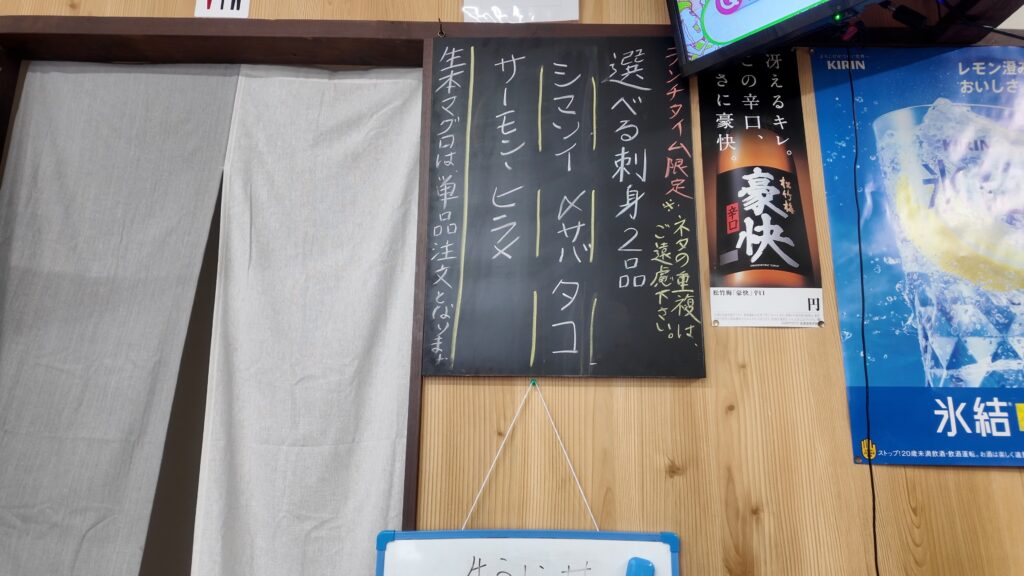 ランチタイム限定
※ネタの重複は、
ご遠慮下さい。
選べる刺身2品
シマアジ 〆サバ タコ
サーモン、ヒラメ
生本マグロは単品注文となります
冴えるキレ。
この辛口、
さに豪快。
松竹梅
豪快
辛口
松竹梅「豪快」辛口
円
KIRIN
レモン澄み
おいしさ
KIRIN
氷結
ストップ!20歳未満飲酒・飲酒運転。お酒は楽しく適